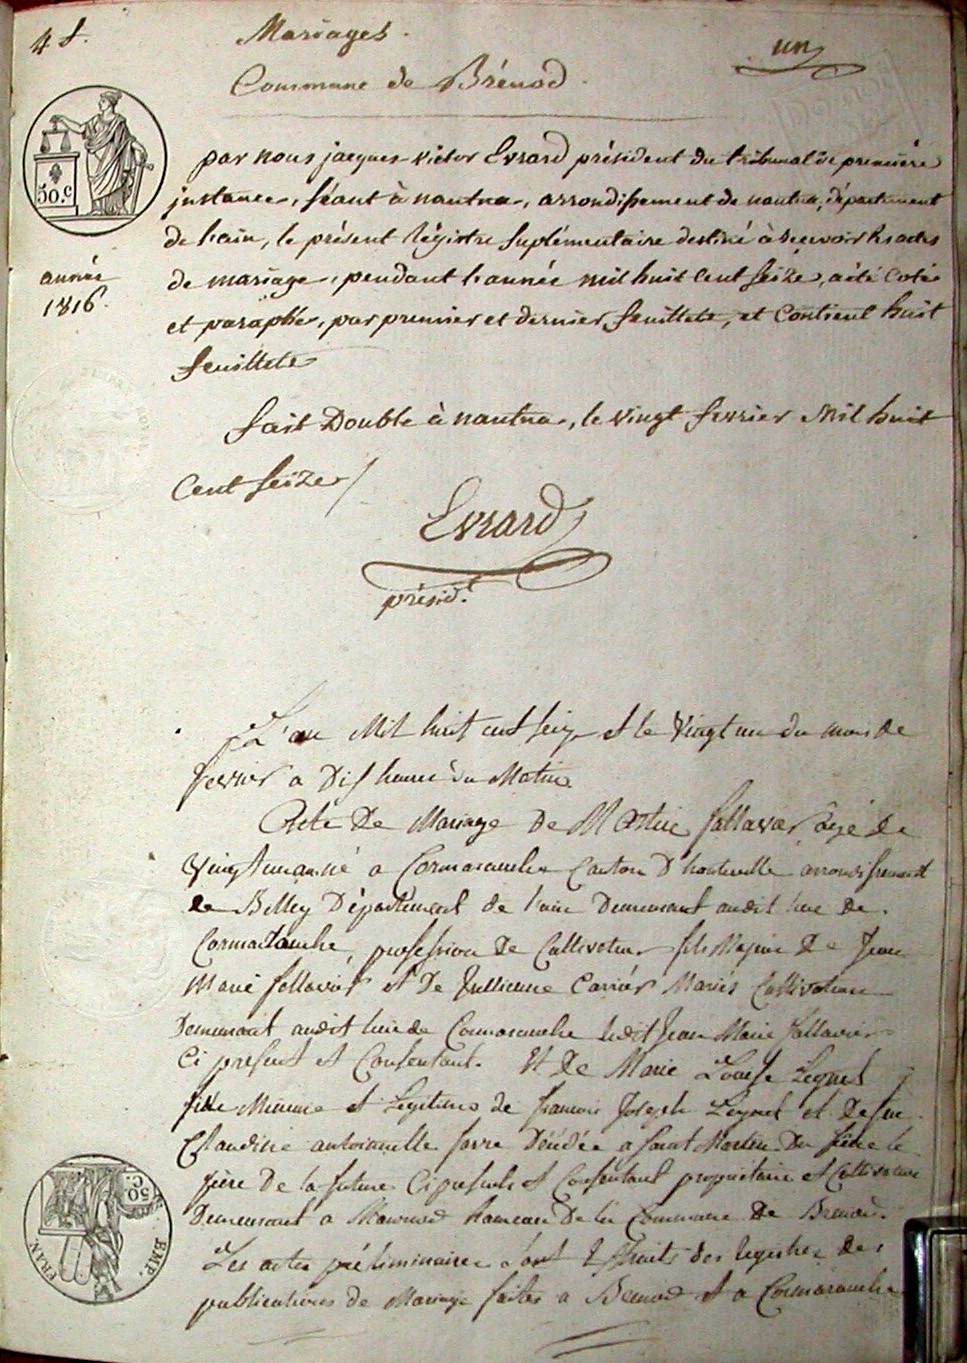 4 f.
Mariages.
un
Commune de Brénod.
50.c
par nous jacques victor Evrard président du tribunal de première
instance, séant à nantua, arrondissement de nantua, département
de l'ain, le présent régistre suplémentaire destiné à recevoir les actes
année
de mariage, pendant l'année mil huit cent seize, a été coté
1816.
et paraphé, par premier et dernier feuillets, et contient huit
feuillets
fait Double à nantua, le vingt fevrier mil huit
cent seize /
Evrard
présidt.
L'an Mil huit cent seize et le vingt un du mois de
fevrier a Dix heures du Matin
Acte De Mariage de Martin fallavier âgé de
vingt un an né a Cormaranche Canton D'hauteville arrondissement
de Belley Département de l'ain Demeurant audit lieu de
Cormaranche, profession De Cultivateur fils Majeur De Jean
Marie fallavier et De Jullienne Carrier Mariés Cultivateurs
Demeurant audit lieu de Cormaranche ledit Jean Marie fallavier
Ci present et Consentant. Et De Marie Louise Leynet
fille Mineure et Legitime de francois Joseph Leynet et De feue
Claudine antoinette Décédée a saint Martin Du frène le
père De la future Ci present et Consentant propriétaire et Cultivateur
Demeurant a hameau De la Commune De Brenod.
Les actes préliminaires sont Extraits des registres des
publications de Mariage faites a Brenod et a Cormaranche
50 C.
FRAN.
EMP.